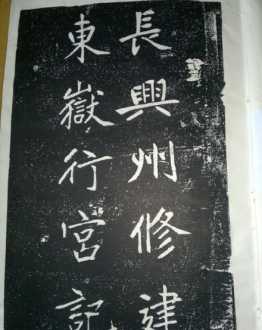 長興州修建
東嶽行宮記